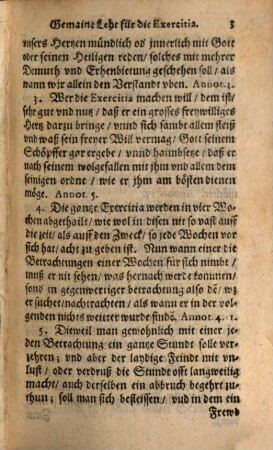 Gemaine Lehr für die Exercitia. 5
vnsers Hertzen mündlich oß jnnerlich mit Gott
oder seinen Heiligen reden/ solches mit mehrer
Demuth vnd Erhenbietung geschehen soll/ als
wann wir allein den Verstand vben. Annot. 3.
3. Wer die Exercitia machen will/ dem ist/
sehr gut vnd nutz/ daß er ein grosses freywilliges
Hertz darzu bringe/ vnnd sich sambt allem fleiß
vnd waß sein freyer Will vermag/ Gott seinem
Schöpffer gor ergebe/ vnnd haimbsetze/ daß er
nach seinem wolgefallen mit jhm vnd allem dem
seinigen ordne/ wie er jhm am bösten dienen
möge. Annot. 5.
4. Die gantze Exercitia werden in vier Wo-
chen abgethailt/ wie wol in disen nit so vast auff
die zeit/ als auff den Zweck/ so jede Wochen vor
sich hat/ acht zu geben ist. Nun wann einer die
Betrachtungen einer Wochen für sich nimbt/
muß er nit sehen/ was hernach werde kommen/
sonnd in gegenwertiger betrachtung also dē/ wz
er suchet/nachtrachten/ als wann er in der vol-
genden nichts weitter wurde findē. Annot. 4. 1.
5. Dieweil man gewohnlich mit einer je-
den Betrachtung ein gantze Stundt solle ver-
zehren; vnd aber der laydige Feindt mit vn-
lust/ oder verdruß die Stundt offt langweilig
macht/ auch derselben ein abbruch begehrt zu-
thun; soll man sich befleissen/ vnd in dem ein
Frewd